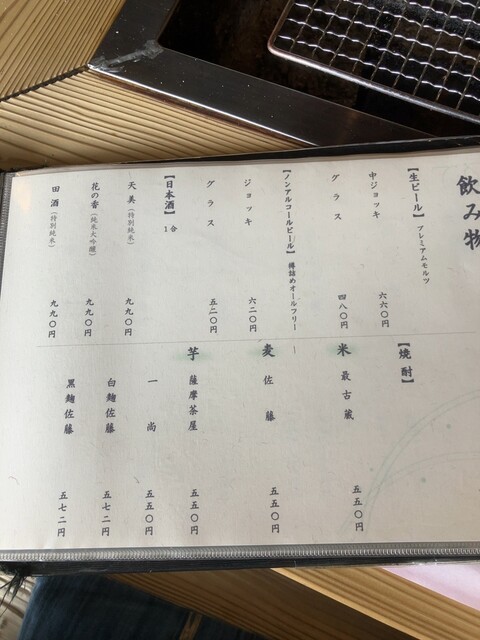 飲み物
【生ビール】 プレミアムモルツ
中ジョッキ 六六〇円
グラス 四八〇円
【ノンアルコールビール】 樽詰めオールフリー
ジョッキ 六二〇円
グラス 五二〇円
【日本酒】 1合
天美(特別純米) 九九〇円
花の香(純米大吟醸) 九九〇円
田酒(特別純米) 九九〇円
【焼酎】
米 最古蔵 五五〇円
麦 佐藤 五五〇円
芋 薩摩茶屋 五五〇円
一尚 五五〇円
白麹佐藤 五七二円
黒麹佐藤 五七二円